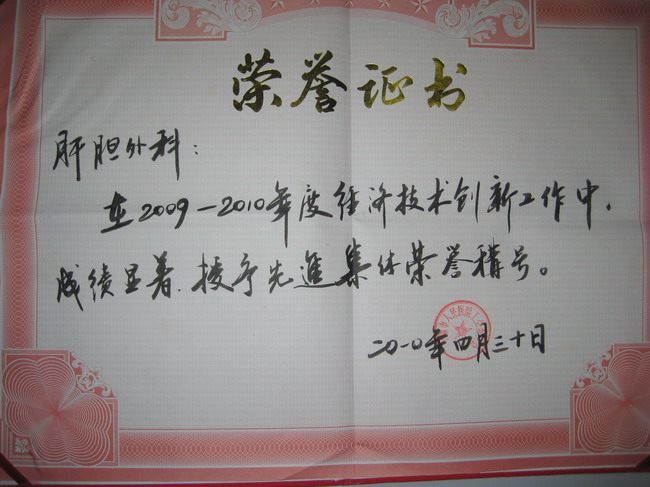 荣誉证书
肝胆外科：
在2009—2010年度经济技术创新工作中，
成绩显著，授予先進集体荣誉稱号。
二〇一〇年四月三十日